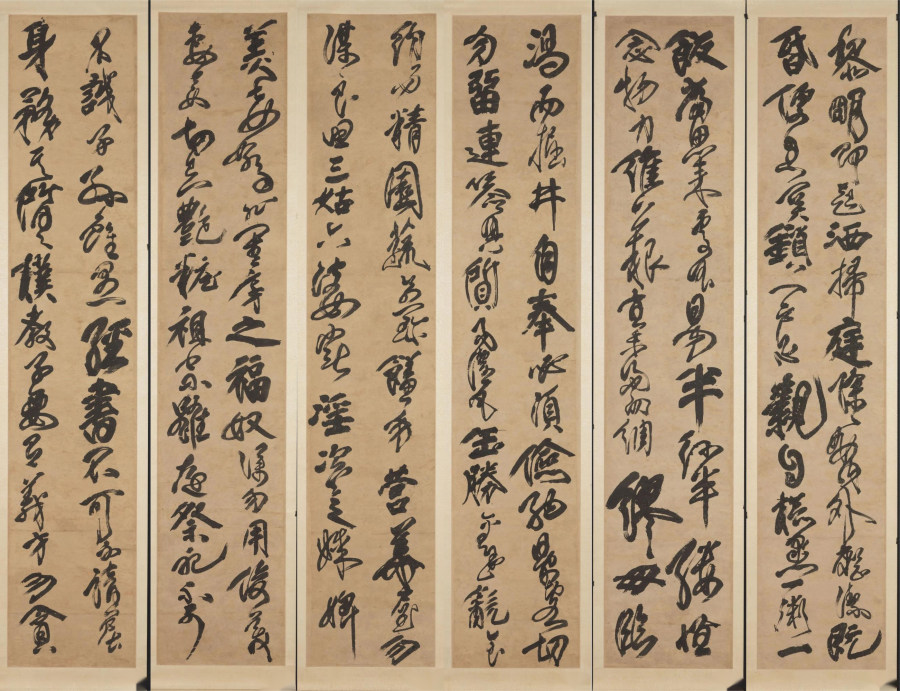 黎明即起洒掃庭除要內外整潔既
昏便息關鎖門戶必親自檢點一粥一
飯當思來處不易半絲半縷恒
念物力維艱宜未雨綢繆毋臨
渴而掘井自奉必須儉約宴客切
勿留連器具質而潔瓦缶勝金玉飲食
約而精園蔬愈珍饈勿營華屋勿
謀良田三姑六婆實淫盜之媒婢
美妾嬌非閨房之福奴僕勿用俊美
妻妾切忌艷粧祖宗雖遠祭祀不可
不誠子孫雖愚經書不可不讀居
身務期質樸教子要有義方勿貪